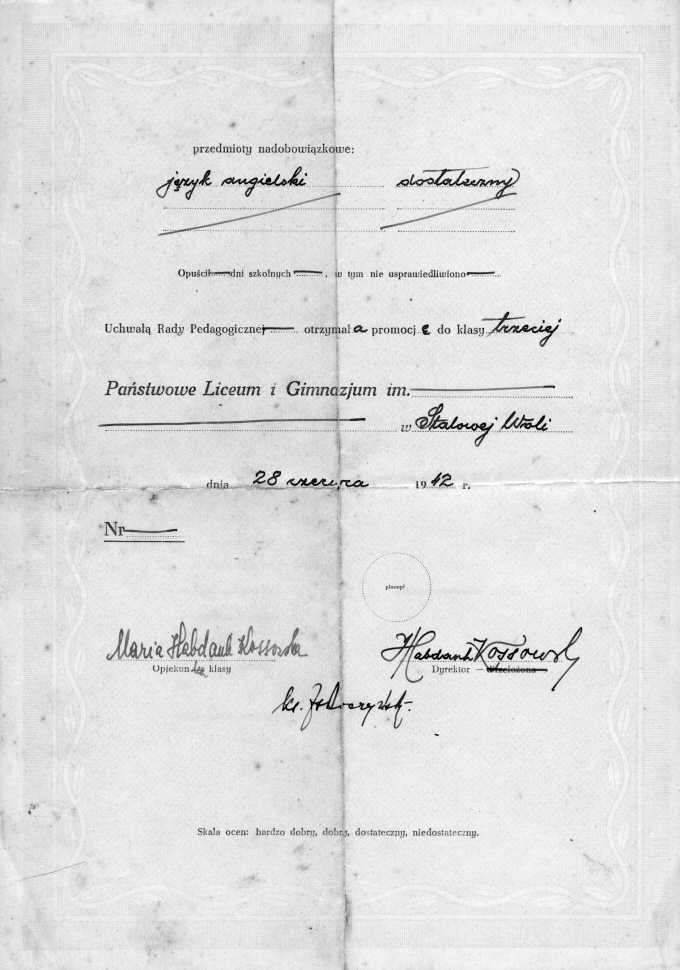 przedmioty nadobowiązkowe:
język angielski dostateczny
Opuścił dni szkolnych , w tym nie usprawiedliwiono
Uchwałą Rady Pedagogicznej otrzymała promocję do klasy trzeciej
Państwowe Liceum i Gimnazjum im.
w Stalowej Woli
dnia 28 czerwca 1942 r.
Nr
pieczęć
Maria Habdank Kossowska Habdank Kossowski
Opiekunka klasy Dyrektor
ks.
Skala ocen: bardzo dobry, dobry, dostateczny, niedostateczny.